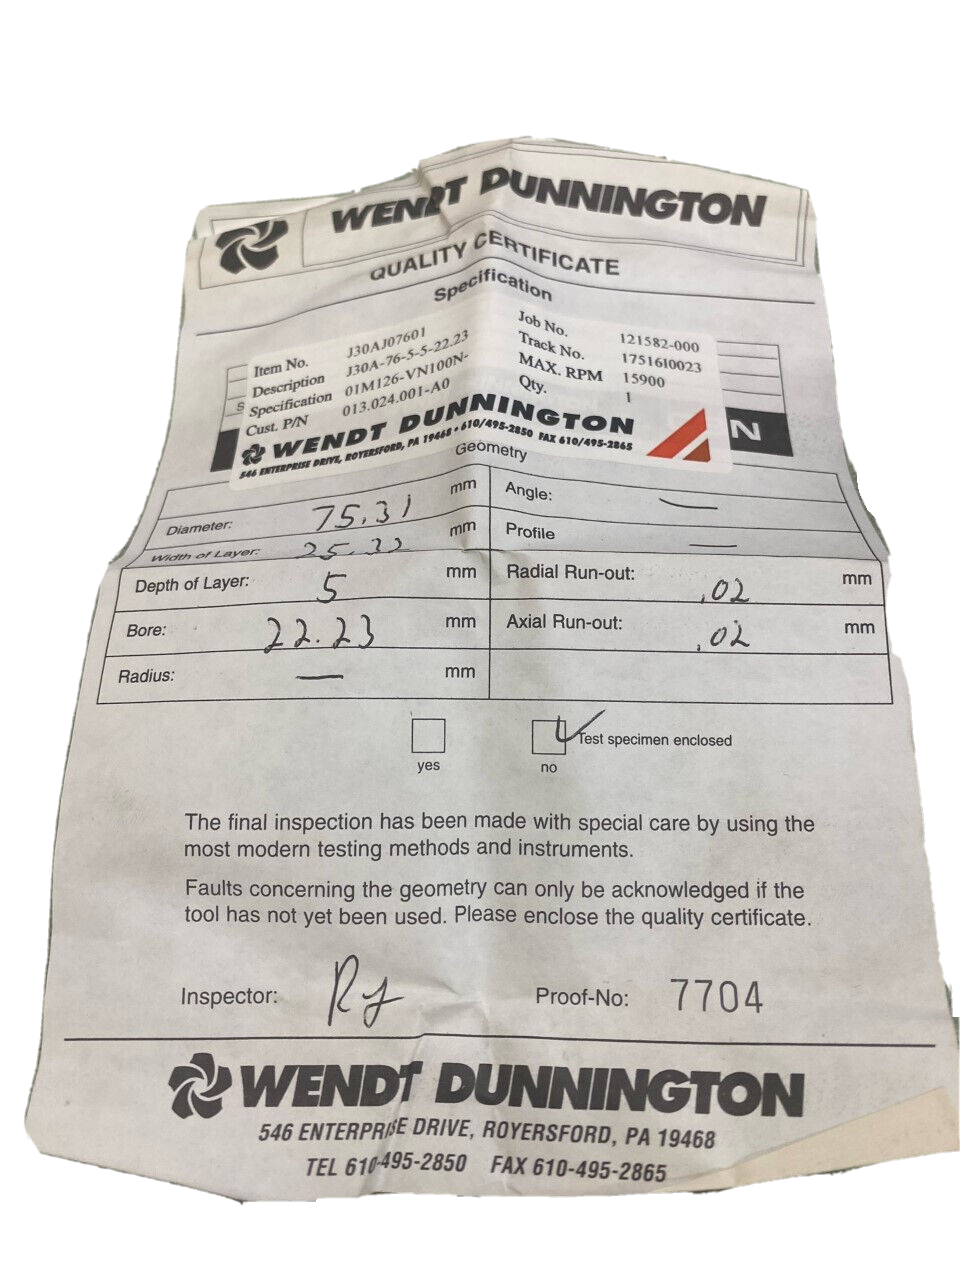 WENDT DUNNINGTON
QUALITY CERTIFICATE
Specification
Item No. J30AJ07601 Job No. 121582-000
Description J30A-76-5-5-22.23 Track No. 1751610023
Specification 01M126-VN100N- MAX. RPM 15900
Cust. P/N 013.024.001-A0 Qty. 1
S
N
WENDT DUNNINGTON
546 ENTERPRISE DRIVE, ROYERSFORD, PA 19468 • 610/495-2850 FAX 610/495-2865
Geometry
Diameter: 75.31 mm Angle: —
Width of Layer: mm Profile —
Depth of Layer: 5 mm Radial Run-out: .02 mm
Bore: 22.23 mm Axial Run-out: .02 mm
Radius: — mm
Test specimen enclosed
yes no
The final inspection has been made with special care by using the
most modern testing methods and instruments.
Faults concerning the geometry can only be acknowledged if the
tool has not yet been used. Please enclose the quality certificate.
Inspector: Proof-No: 7704
WENDT DUNNINGTON
546 ENTERPRISE DRIVE, ROYERSFORD, PA 19468
TEL 610-495-2850 FAX 610-495-2865